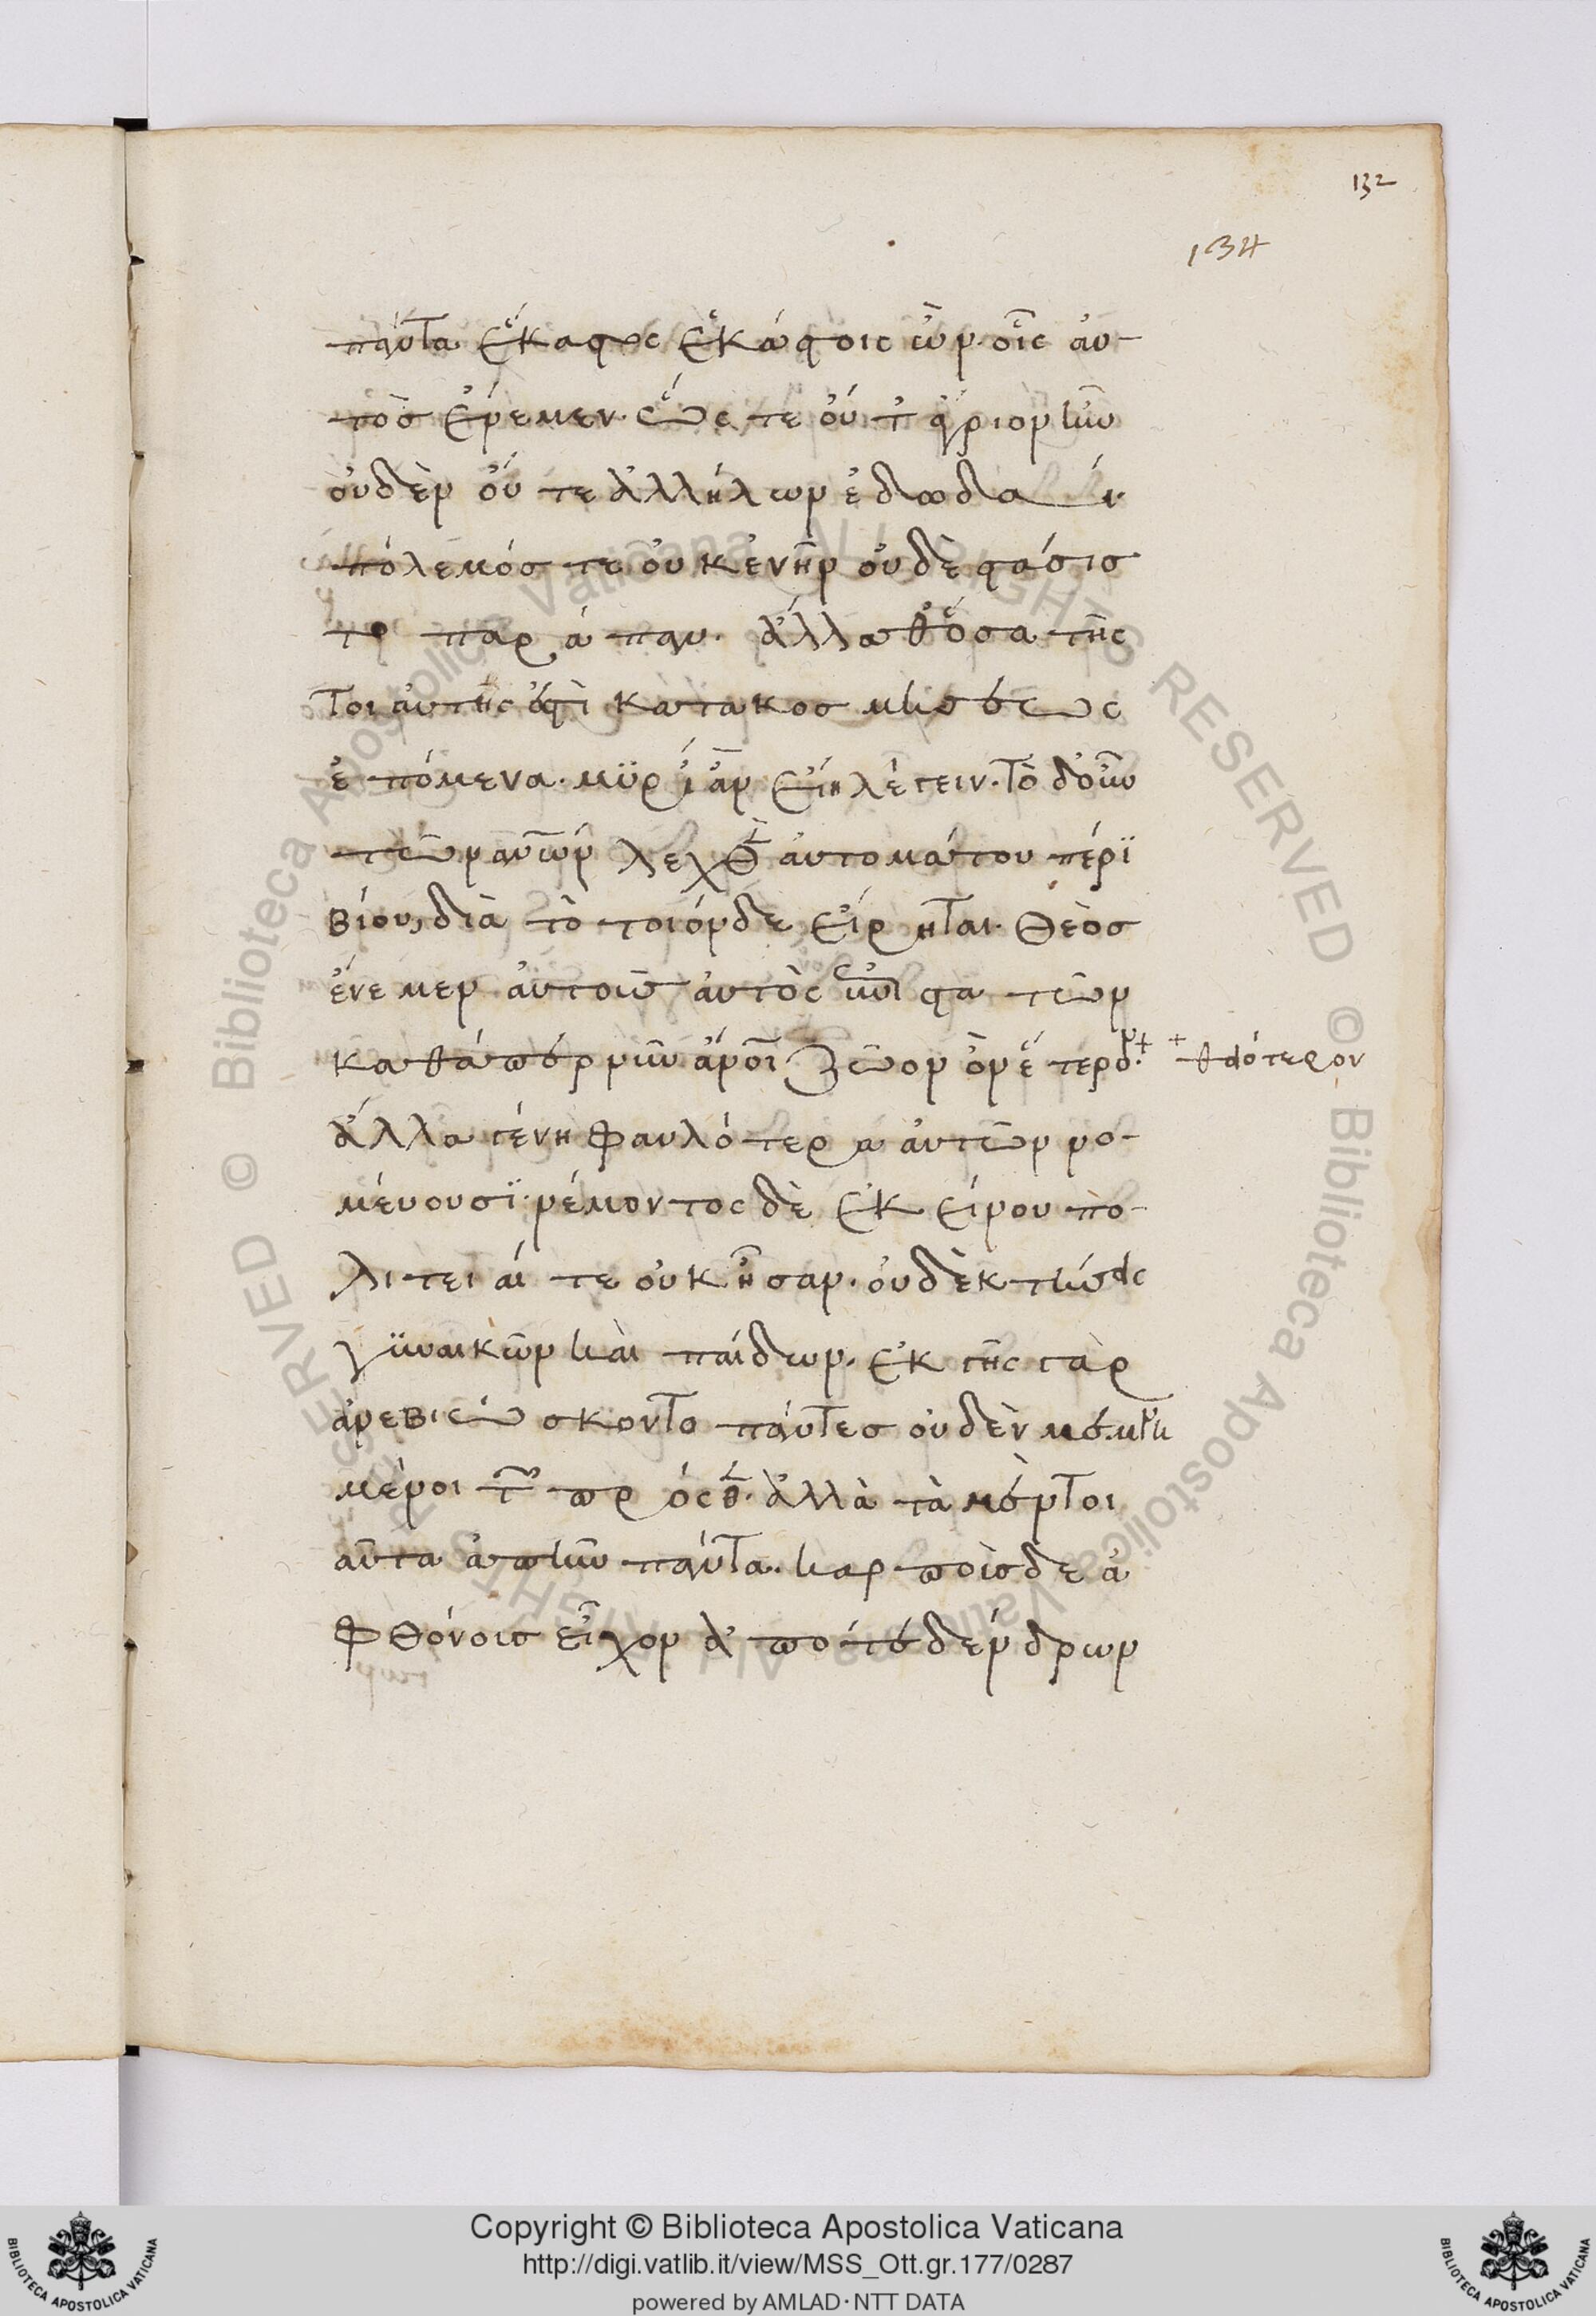 132
134
πάντα ἕκαστος ἑκάστοις ὢν οἷς αὐ-
τὸς ἔνεμεν. ὥστε οὔτ' ἄγριον ἦν
οὐδὲν οὔτε ἀλλήλων ἐδωδαί
πόλεμός τε οὐκ ἐνῆν οὐδὲ στάσις
τὸ παράπαν. ἄλλα θ' ὅσα τῆς
τοιαύτης ἐστὶ κατακοσμήσεως
ἑπόμενα. μυρί' ἂν εἴη λέγειν. τὸ δ' οὖν
τῶν ἀνων λεχθὲν αὐτομάτου πέρι
βίου, διὰ τὸ τοιόνδε εἴρηται. θεὸς
ἔνεμεν αὐτοὺς αὐτὸς ἐπιστατῶν
καθάπερ νῦν ἄνοι ζῶον ὂν ἕτερον
θειότερον
ἄλλα γένη φαυλότερα αὐτῶν νο-
μεύουσι. νέμοντος δὲ ἐκείνου πο-
λιτεῖαί τε οὐκ ἦσαν. οὐδὲ κτήσεις
γυναικῶν καὶ παίδων. ἐκ γῆς γὰρ
ἀνεβιώσκοντο πάντες οὐδὲν μεμνη
μένοι τῶν πρόσθεν. ἀλλὰ τὰ μὲν τοι
αῦτα ἀπῆν πάντα. καρποὺς δὲ ἀ
φθόνους εἶχον ἀπό τε δένδρων
Copyright © Biblioteca Apostolica Vaticana
http://digi.vatlib.it/view/MSS_Ott.gr.177/0287
powered by AMLAD·NTT DATA